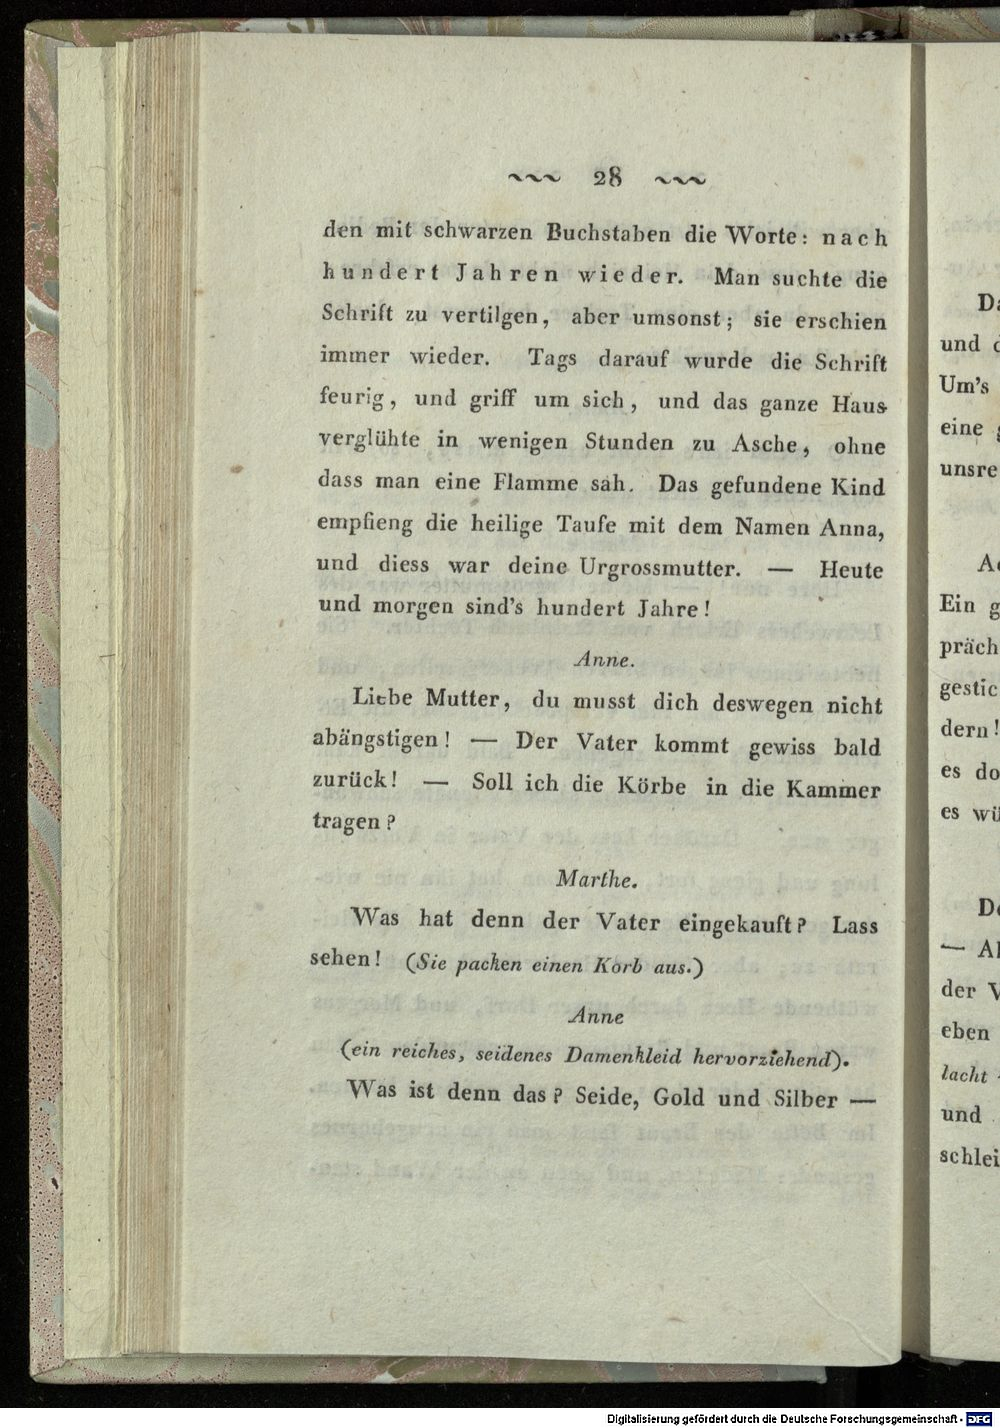 ~~~ 28 ~~~
den mit schwarzen Buchstaben die Worte: nach
hundert Jahren wieder. Man suchte die
Schrift zu vertilgen, aber umsonst; sie erschien
immer wieder. Tags darauf wurde die Schrift
feurig, und griff um sich, und das ganze Haus
verglühte in wenigen Stunden zu Asche, ohne
dass man eine Flamme sah. Das gefundene Kind
empfieng die heilige Taufe mit dem Namen Anna,
und diess war deine Urgrossmutter. — Heute
und morgen sind's hundert Jahre!
Anne.
Liebe Mutter, du musst dich deswegen nicht
abängstigen! — Der Vater kommt gewiss bald
zurück! — Soll ich die Körbe in die Kammer
tragen?
Marthe.
Was hat denn der Vater eingekauft? Lass
sehen! (Sie packen einen Korb aus.)
Anne
(ein reiches, seidenes Damenkleid hervorziehend).
Was ist denn das? Seide, Gold und Silber —
und
Um's
eine
unsre
Ein
präch
gestic
dern!
es do
es wü
der
eben
lacht
und
schlei
Digitalisierung gefördert durch die Deutsche Forschungsgemeinschaft - DFG